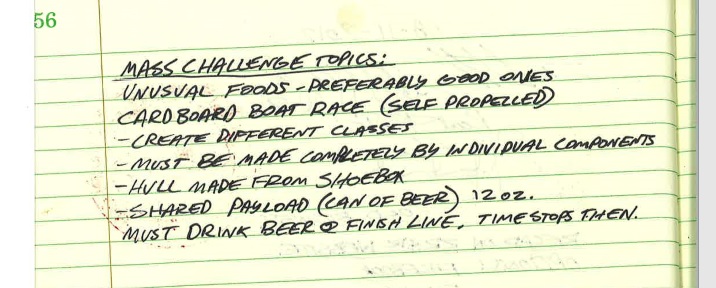 56
MASS CHALLENGE TOPICS:
UNUSUAL FOODS - PREFERABLY GOOD ONES
CARDBOARD BOAT RACE (SELF PROPELLED)
- CREATE DIFFERENT CLASSES
- MUST BE MADE COMPLETELY BY INDIVIDUAL COMPONENTS
- HULL MADE FROM SHOEBOX
- SHARED PAYLOAD (CAN OF BEER) 12 OZ.
MUST DRINK BEER @ FINISH LINE, TIME STOPS THEN.